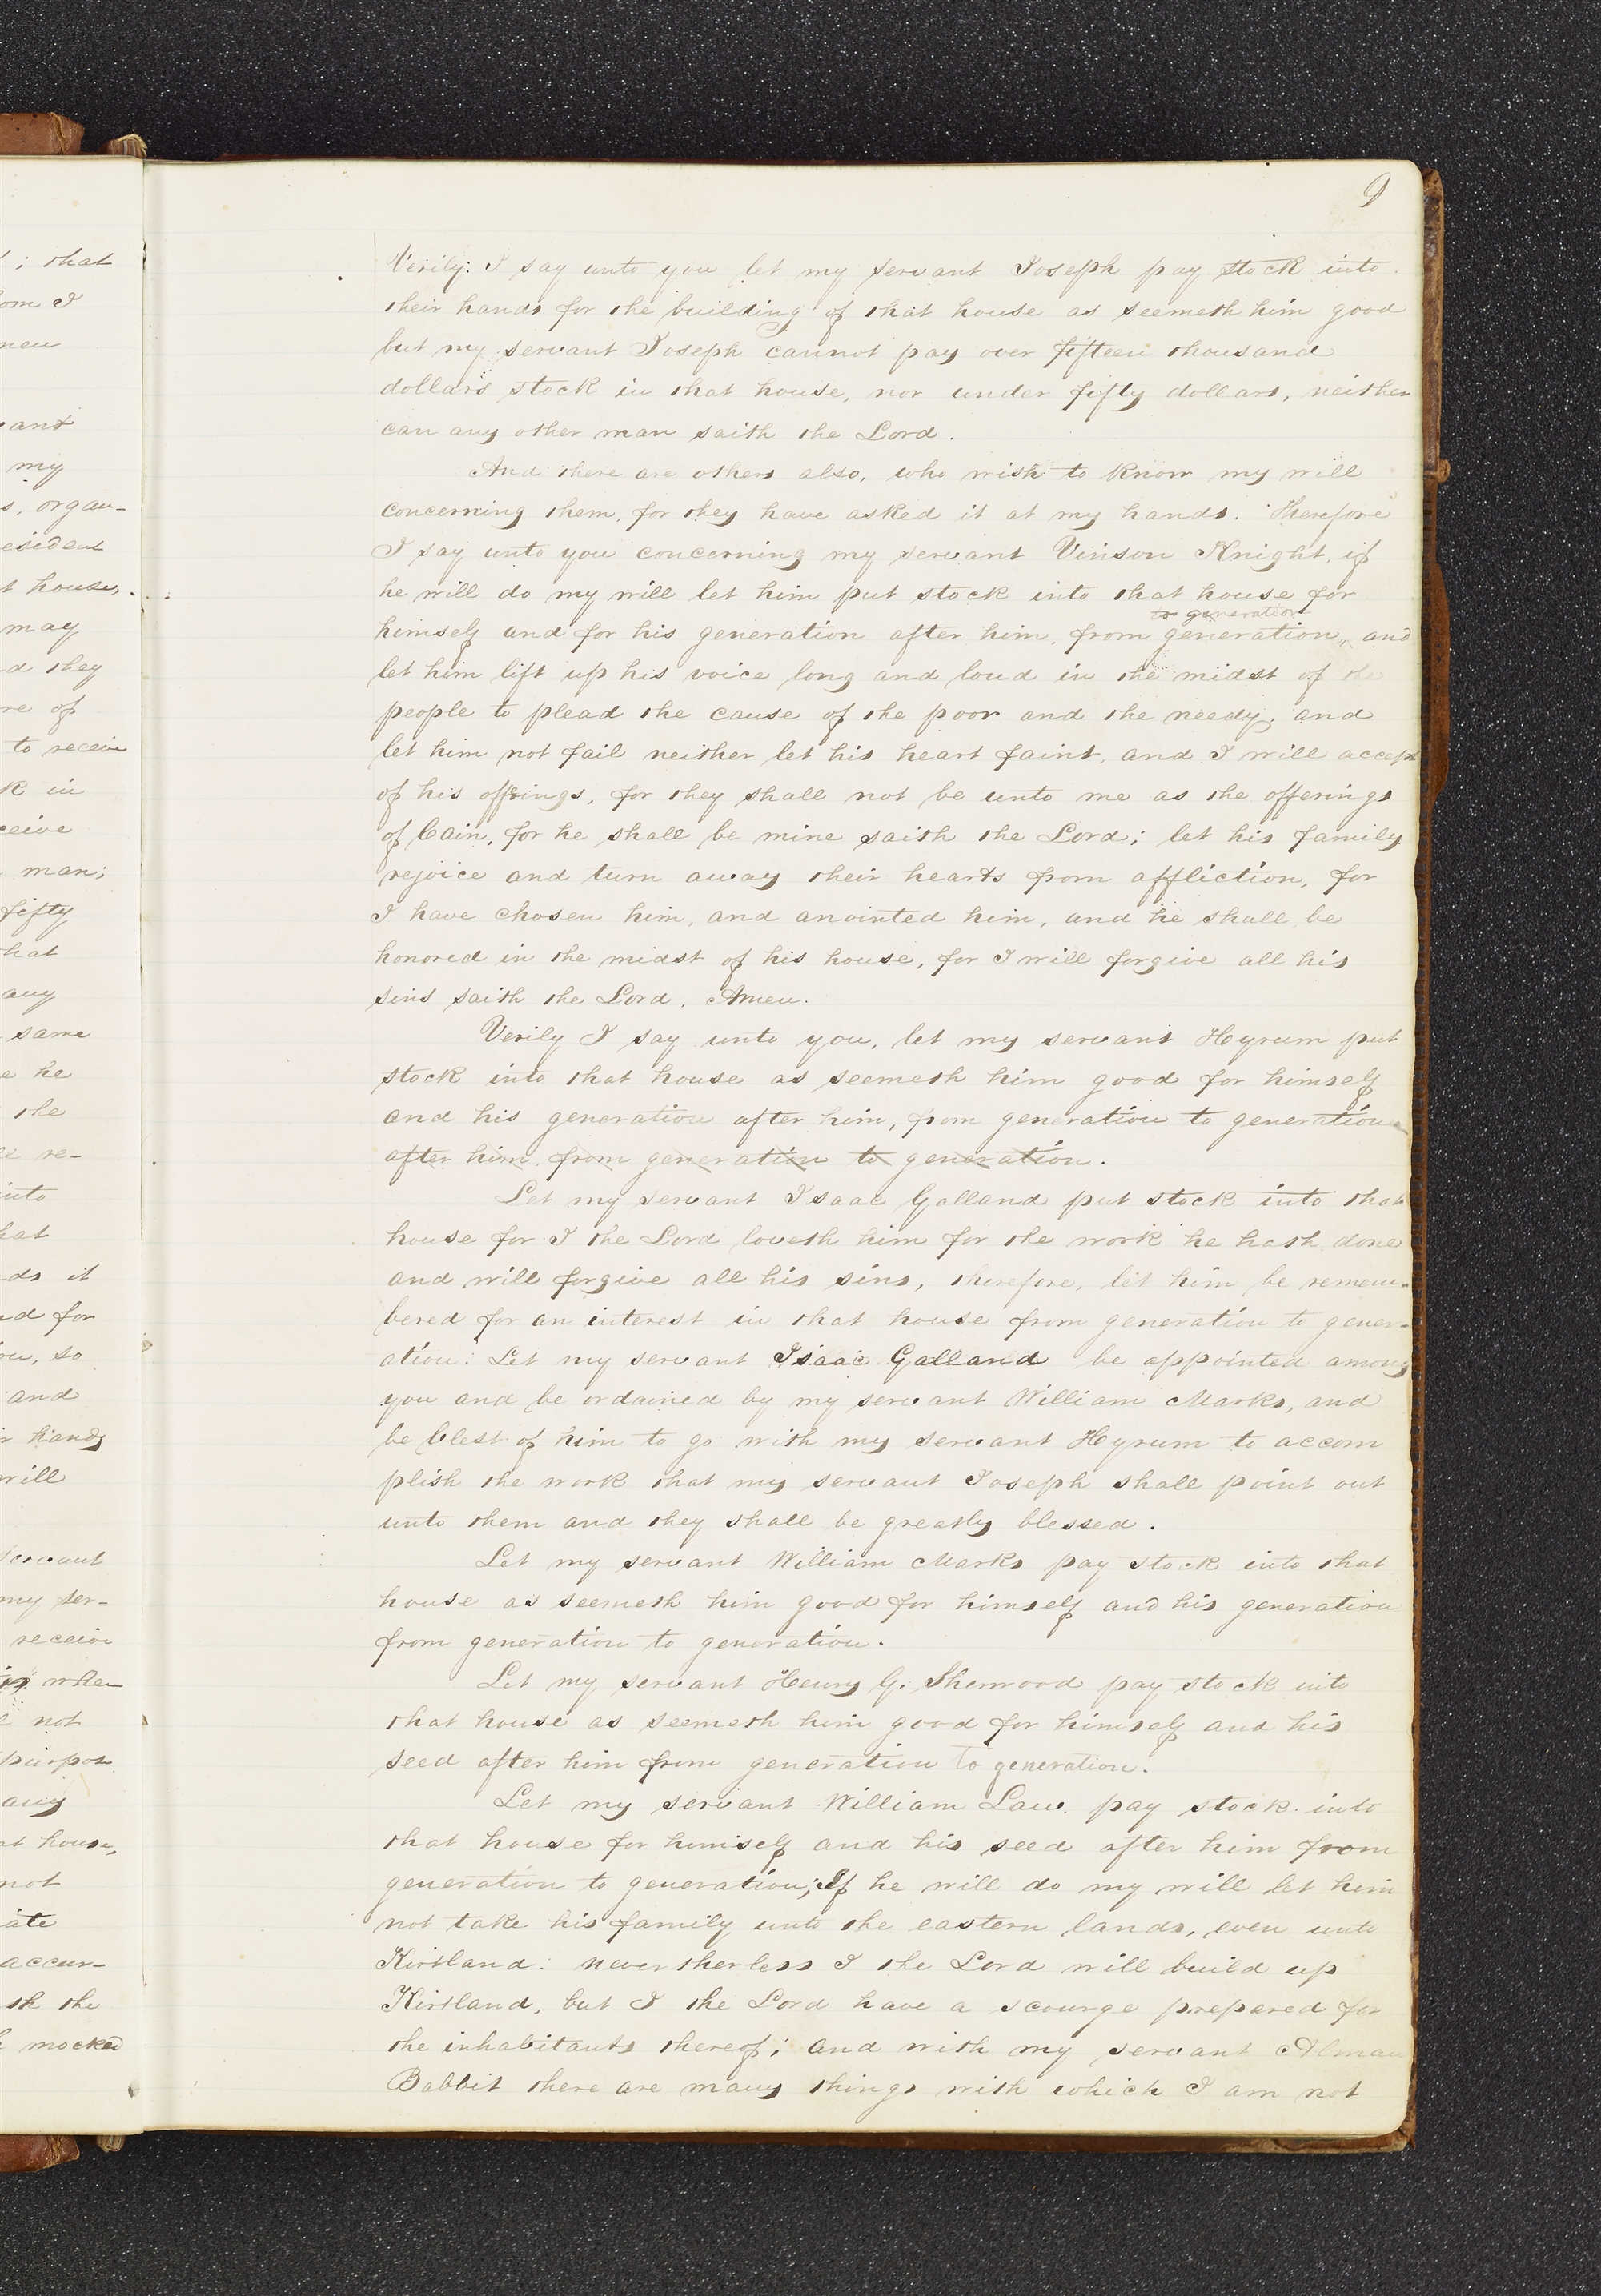 9
Verily: I say unto you let my servant Joseph pay stock into
their hands for the building of that house as seemeth him good
but my servant Joseph cannot pay over fifteen thousand
dollars stock in that house, nor under fifty dollars, neither
can any other man saith the Lord.
And there are others also, who wish to know my will
concerning them, for they have asked it at my hands. Therefore
I say unto you concerning my servant Vinson Knight, if
he will do my will let him put stock into that house for
to generation
himself and for his generation after him, from generation, and
let him lift up his voice long and loud in the midst of the
people to plead the cause of the poor and the needy; and
let him not fail neither let his heart faint, and I will accept
of his offrings, for they shall not be unto me as the offerings
of Cain, for he shall be mine saith the Lord; let his family
rejoice and turn away their hearts from affliction, for
I have chosen him, and anointed him, and he shall be
honored in the midst of his house, for I will forgive all his
sins saith the Lord. Amen.
Verily I say unto you, let my servant Hyrum put
stock into that house as seemeth him good for himself
and his generation after him, from generation to generation
after him from generation to generation.
Let my servant Isaac Galland put stock into that
house for I the Lord loveth him for the work he hath done
and will forgive all his sins, therefore, let him be remem-
bered for an interest in that house from generation to gener-
ation: Let my servant Isaac Galland be appointed among
you and be ordained by my servant William Marks, and
be blest of him to go with my servant Hyrum to accom
plish the work that my servant Joseph shall point out
unto them and they shall be greatly blessed.
Let my servant William Marks pay stock into that
house as seemeth him good for himself and his generation
from generation to generation.
Let my servant Henry G. Sherwood pay stock into
that house as seemeth him good for himself and his
seed after him from generation to generation.
Let my servant William Law pay stock into
that house for himself and his seed after him from
generation to generation; If he will do my will let him
not take his family unto the eastern lands, even unto
Kirtland: nevertherless I the Lord will build up
Kirtland, but I the Lord have a scourge prepared for
the inhabitants thereof; and with my servant Almon
Babbit there are many things with which I am not